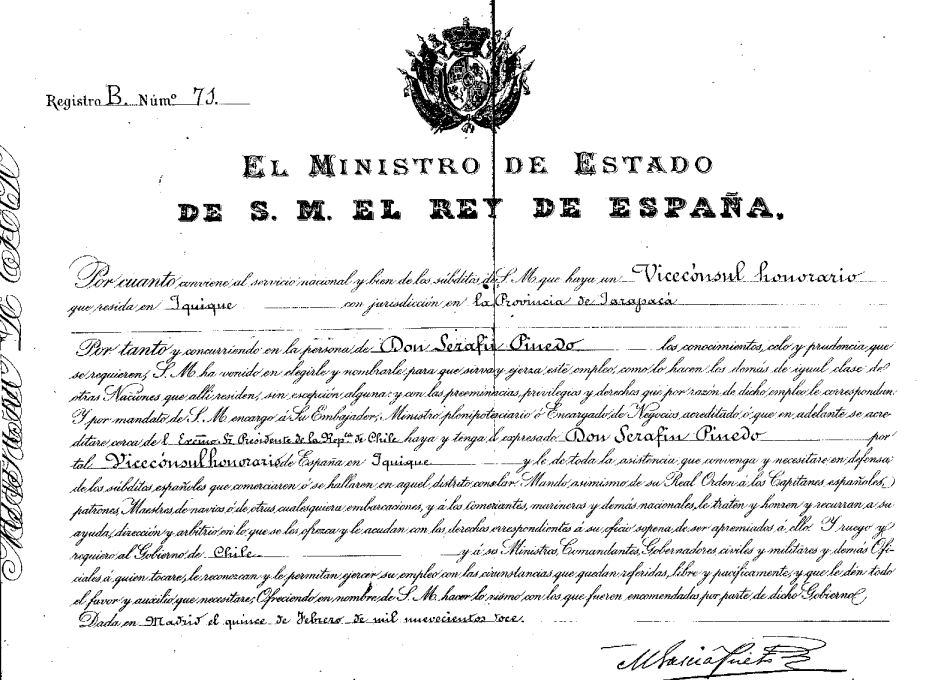 Registro B. Núm.º 71.
EL MINISTRO DE ESTADO
DE S. M. EL REY DE ESPAÑA.
Por cuanto conviene al servicio nacional y bien de los súbditos de S. M. que haya un Vicecónsul honorario
que resida en Iquique con jurisdicción en la Provincia de Tarapacá
Por tanto y concurriendo en la persona de Don Serafin Pinedo los conocimientos, celo y prudencia que
se requieren, S. M. ha venido en elegirle y nombrarle, para que sirva y ejerza este empleo, como lo hacen los demás de igual clase de
otras Naciones que allí residen, sin excepción alguna: y con las preeminencias, privilegios y derechos que por razón de dicho empleo le correspondan.
Y por mandato de S. M. encargo á Su Embajador, Ministro plenipotenciario ó Encargado de Negocios, acreditado ó que en adelante se acre-
ditare cerca del Excmo. Sr. Presidente de la Repca. de Chile haya y tenga al expresado Don Serafin Pinedo por
tal Vicecónsul honorario de España en Iquique y le dé toda la asistencia que convenga y necesitare en defensa
de los súbditos españoles que comerciaren ó se hallaren en aquel distrito consular. Mando asimismo de su Real Orden á los Capitanes españoles,
patrones, Maestres de navíos ó de otras cualesquiera embarcaciones, y á los comerciantes, marineros y demás nacionales, le traten y honren y recurran á su
ayuda, dirección y arbitrio en lo que se les ofrezca y le acudan con los derechos correspondientes á su oficio sopena de ser apremiados á ello. Y ruego y
requiero al Gobierno de Chile y á su Ministros, Comandantes, Gobernadores civiles y militares y demás Ofi-
ciales á quien tocare, le reconozcan y le permitan ejercer su empleo con las circunstancias que quedan referidas, libre y pacíficamente, y que le den todo
el favor y auxilio que necesitare; Ofreciendo en nombre de S. M. hacer lo mismo con los que fueren encomendadas por parte de dicho Gobierno
Dada en Madrid el quince de Febrero de mil nuevecientos doce.
M García Prieto